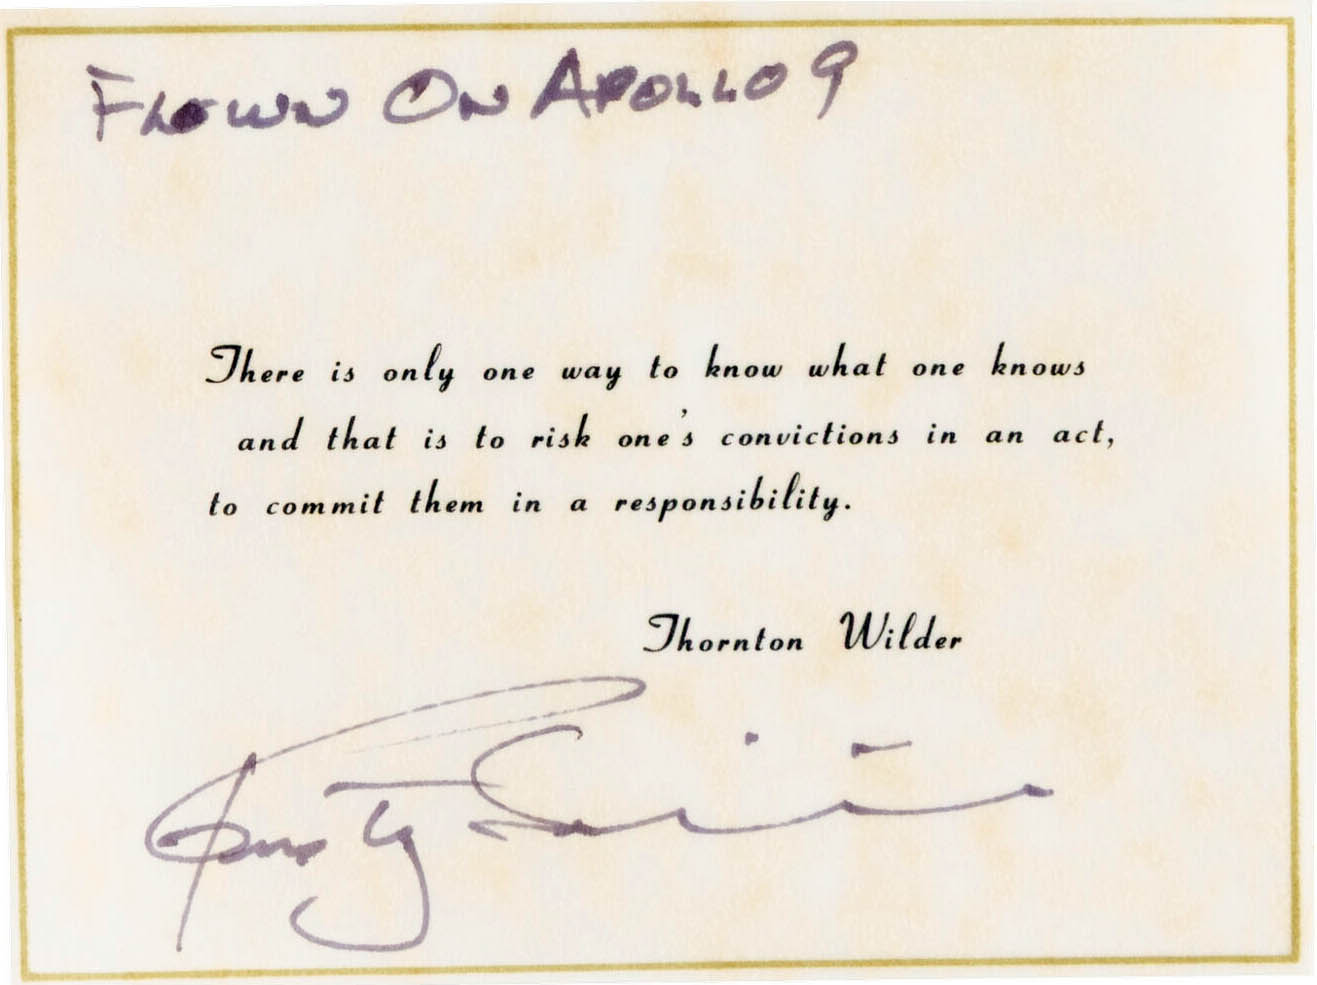 FLOWN ON APOLLO 9
There is only one way to know what one knows
and that is to risk one's convictions in an act,
to commit them in a responsibility.
Thornton Wilder
Rusty Schweickart